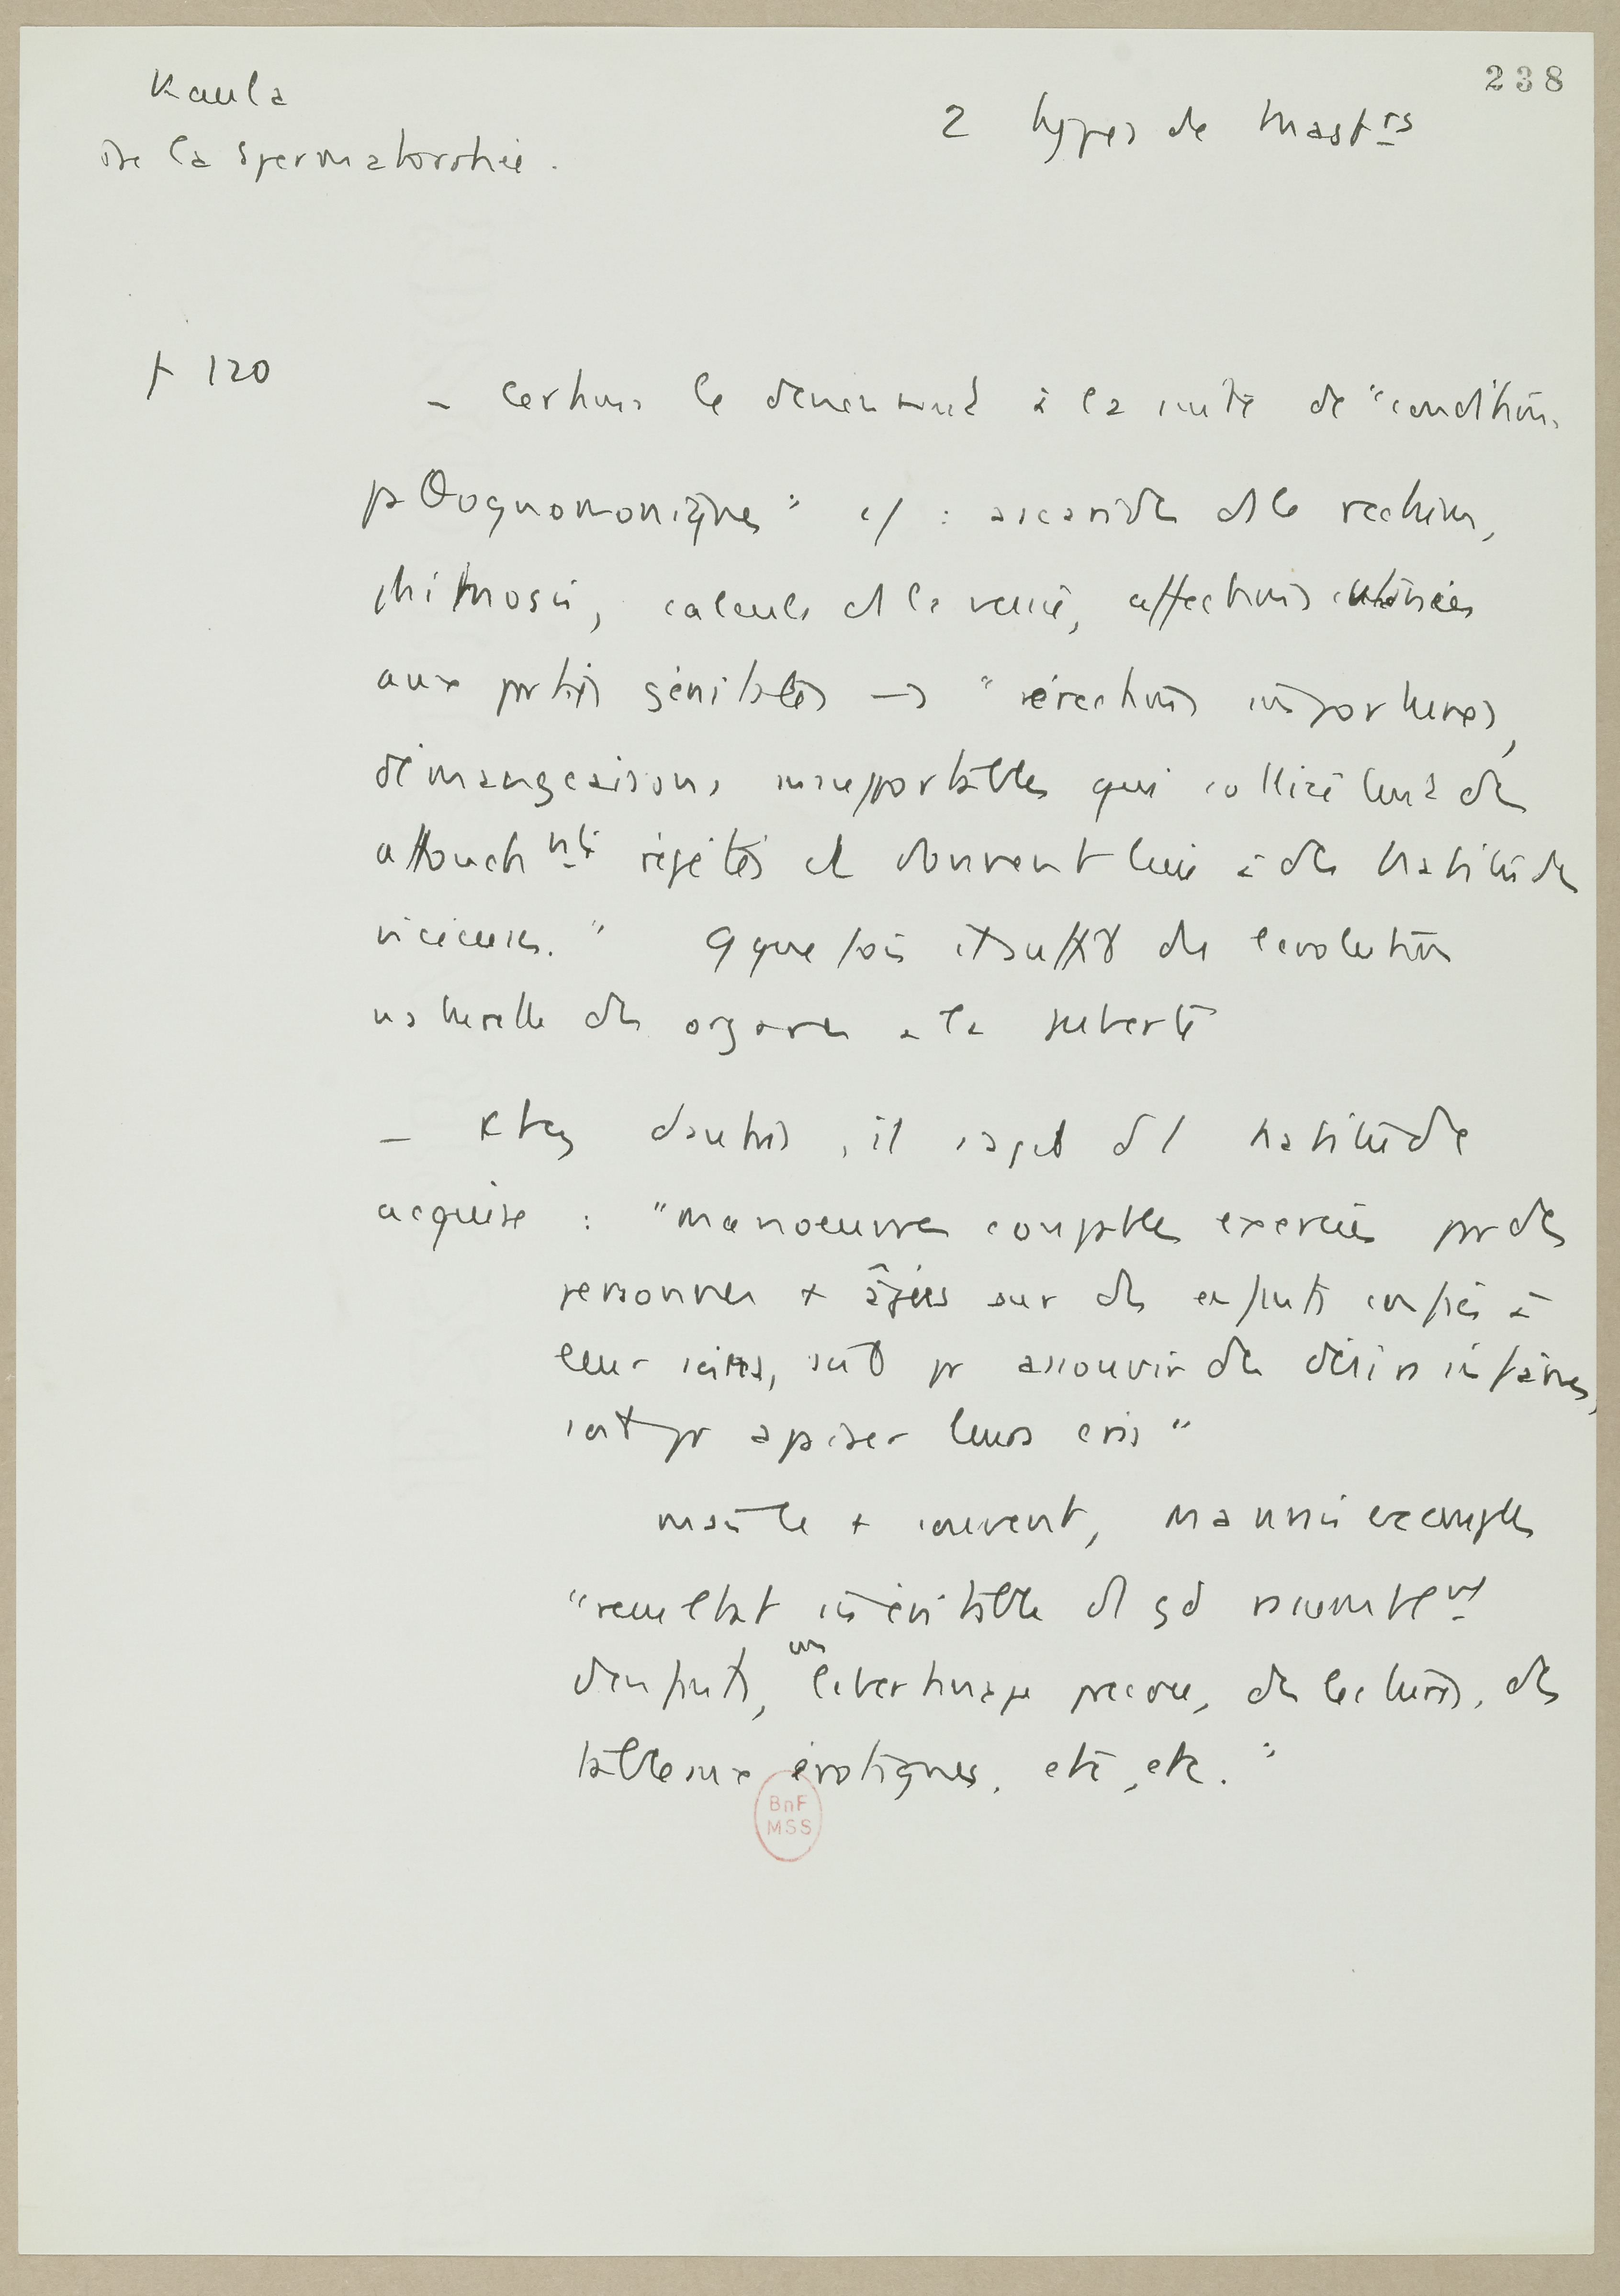 238
Kaula
De la spermatorrhée.
2 types de mastrs
p 120
- Certains le deviennent à la suite de "conditions
pathognomoniques" cf : ascarides ds le rectum,
phimosis, calculs ds la vessie, affections cutanées
aux parties génitales → "érections importunes,
démangeaisons insupportables qui sollicitent des
attouchnts répétés et donnent lieu à des habitudes
vicieuses." Qquefois il suffit de l'évolution
naturelle des organes à la puberté
- Chez d'autres, il s'agit d'1 habitude
acquise : "manoeuvres coupables exercées par des
personnes + âgées sur des enfants confiés à
leur soins, soit pr assouvir des désirs infâmes,
soit pr apaiser leurs cris"
mais le + souvent, mauvais exemples
"resultat inévitable d gd
d'enfants, un libertinage précoce, des lectures, des
tableaux érotiques, etc, etc."
BnF
MSS